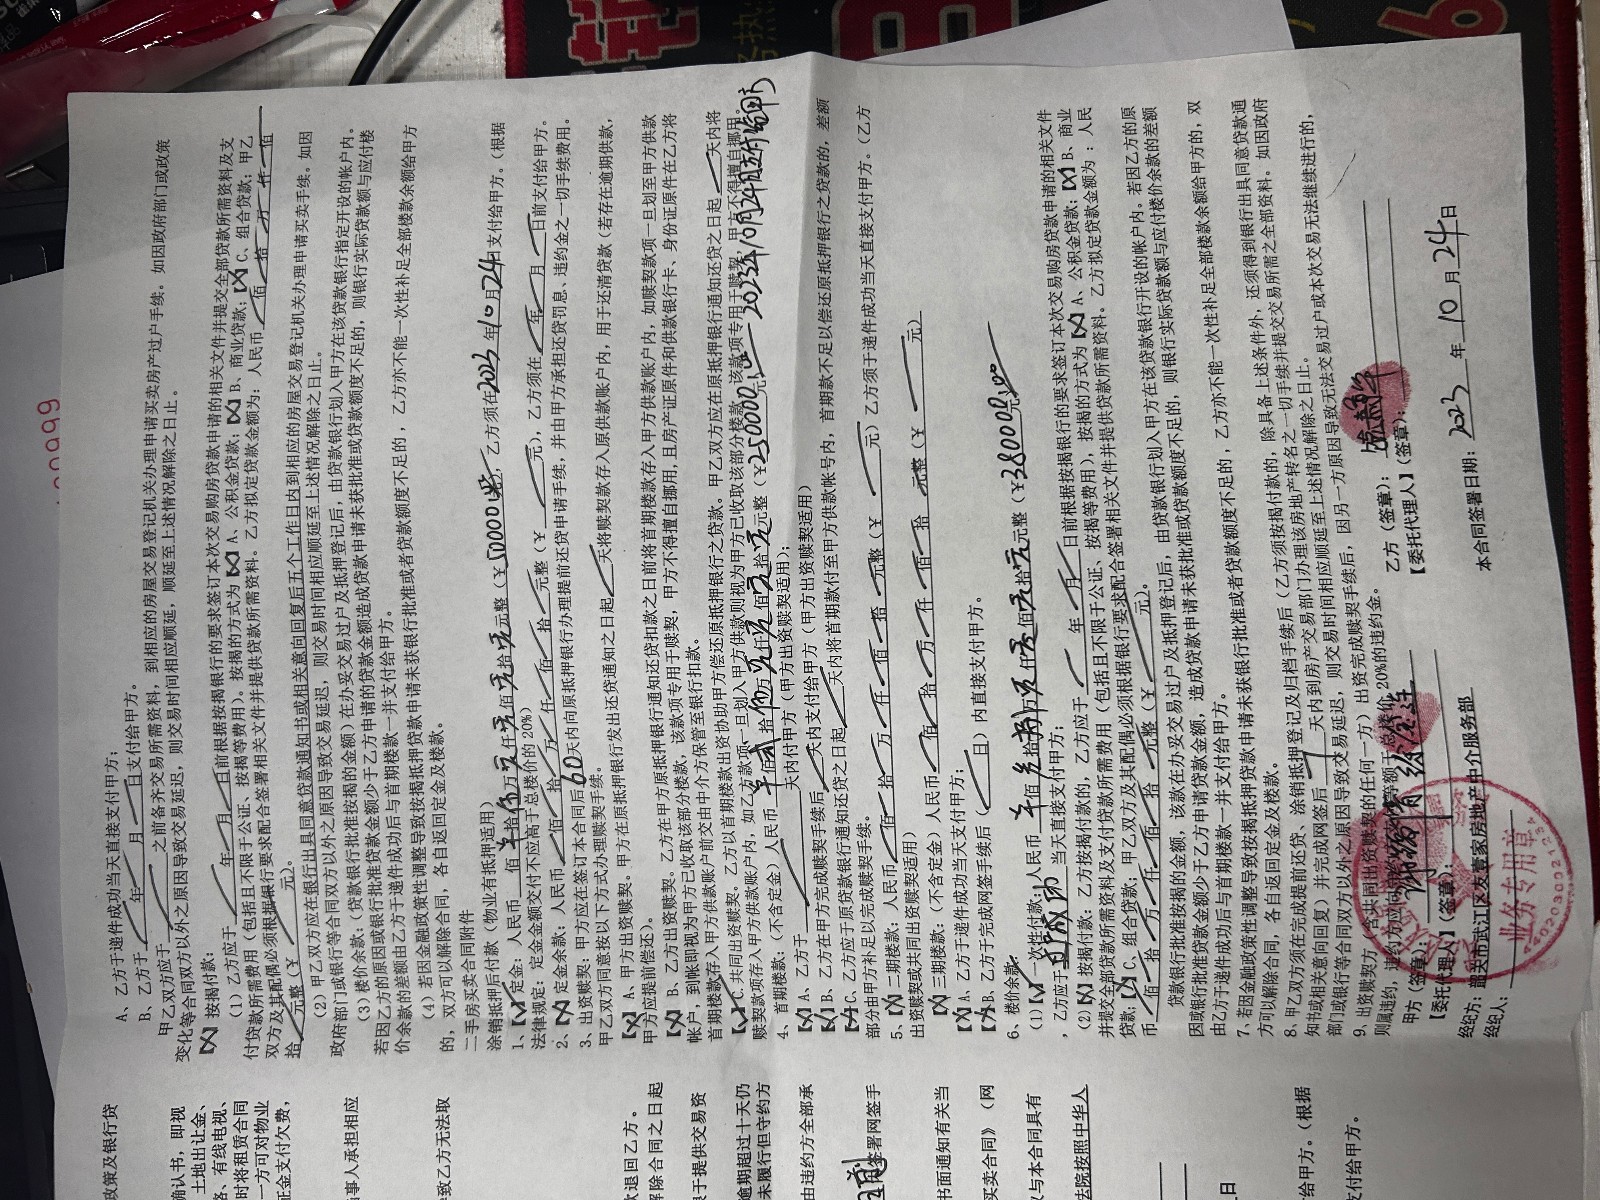 A、乙方于递件成功当天直接支付甲方；
B、乙方于 年 月 日支付给甲方。
甲乙双方应于 之前备齐交易所需资料，到相应的房屋交易登记机关办理申请买卖房产过户手续。如因政府部门或政策
变化等合同双方以外之原因导致交易延迟，则交易时间相应顺延，顺延至上述情况解除之日止。
【X】按揭付款：
（1）乙方应于 年 月 日前根据按揭银行的要求签订本次交易购房贷款申请的相关文件并提交全部贷款所需资料及支
付贷款所需费用（包括且不限于公证、按揭等费用）。按揭的方式为【X】A、公积金贷款；【X】B、商业贷款；【X】C、组合贷款；甲乙
双方及其配偶必须根据银行要求配合签署相关文件并提供贷款所需资料。乙方拟定贷款金额为：人民币 佰 拾 万 仟 佰
拾 元整（￥ 元）。
（2）甲乙双方应在银行出具同意贷款通知书或相关意向回复后五个工作日内到相应的房屋交易登记机关办理申请买卖手续。如因
政府部门或银行等合同双方以外之原因导致交易延迟，则交易时间相应顺延至上述情况解除之日止。
（3）楼价余款：（贷款银行批准按揭的金额）在办妥交易过户及抵押登记后，由贷款银行划入甲方在该贷款银行指定开设的帐户内。
若因乙方的原因或银行批准贷款金额少于乙方申请的贷款金额造成贷款申请未获批准或贷款额度不足的，则银行实际贷款额与应付楼
价余款的差额由乙方于递件成功后与首期楼款一并支付给甲方。
（4）若因金融政策性调整导致按揭抵押贷款申请未获银行批准或者贷款额度不足的，乙方亦不能一次性补足全部楼款余额给甲方
的，双方可以解除合同，各自返回定金及楼款。
二手房买卖合同附件
涂销抵押后付款（物业有抵押适用）
1、【✓】定金：人民币 佰 拾伍万零仟零佰零拾零元整（￥50000元），乙方须在2023年10月24日支付给甲方。（根据
法律规定：定金金额交付不应高于总楼价的20%）
2、【X】定金余款：人民币 佰 拾 万 仟 佰 拾 元整（￥ 元），乙方须在 年 月 日前支付给甲方。
3、出资赎契：甲方应在签订本合同后60天内向原抵押银行办理提前还贷申请手续，并由甲方承担还贷罚息、违约金之一切手续费用。
甲乙双方同意按以下方式办理赎契手续。
【X】A、甲方出资赎契。甲方在原抵押银行发出还贷通知之日起 天将赎契款存入原供款账户内，用于还清贷款（若存在逾期供款，
甲方应提前偿还）。
【X】B、乙方出资赎契。乙方在甲方原抵押银行通知还贷扣款之日前将首期楼款存入甲方供款账户内，如赎契款项一旦划至甲方供款
帐户，到账即视为甲方已收取该部分楼款，该款项专用于赎契，甲方不得擅自挪用，且房产证原件和供款银行卡、身份证原件在乙方将
首期楼款存入甲方供款账户前交由中介方保管至银行扣款。
【✓】C、共同出资赎契。乙方以首期楼款出资协助甲方偿还原抵押银行之贷款。甲乙双方应在原抵押银行通知还贷之日起 天内将
赎契款项存入甲方供款账户内，如乙方款项一旦划入甲方供款则视为甲方已收取该部分楼款，该款项专用于赎契，甲方不得擅自挪用。
4、首期楼款：（不含定金）人民币 佰贰拾伍万零仟零佰零拾零元整（￥250000元） 2023年10月24日支付给甲方
天内付甲方（甲方出资赎契适用）；
【X】A、乙方于 天内支付给甲方（甲方出资赎契适用）
【X】B、乙方在甲方完成赎契手续后 天内将首期款付至甲方供款帐号内，首期款不足以偿还原抵押银行之贷款的，差额
【X】C、乙方应于原贷款银行通知还贷之日起
部分由甲方补足以完成赎契手续。
（乙方出资赎契或共同出资赎契适用）
5、【X】二期楼款：人民币 佰 拾 万 仟 佰 拾 元整（￥ 元）乙方须于递件成功当天直接支付甲方。（乙方
【X】三期楼款：（不含定金）人民币 佰 拾 万 仟 佰 拾 元整（￥ 元）
【X】A、乙方于递件成功当天支付甲方；
【X】B、乙方于完成网签手续后（ 日）内直接支付甲方。
6、楼价余款：
（1）【✓】一次性付款：人民币 佰 拾 万零仟零佰零拾零元整（￥380000元）
，乙方应于 当天直接支付甲方；
（2）【X】按揭付款：乙方按揭付款的，乙方应于 年 月 日前根据按揭银行的要求签订本次交易购房贷款申请的相关文件
并提交全部贷款所需资料及支付贷款所需费用（包括且不限于公证、按揭等费用），按揭的方式为【X】A、公积金贷款；【X】B、商业
贷款；【X】C、组合贷款；甲乙双方及其配偶必须根据银行要求配合签署相关文件并提供贷款所需资料。乙方拟定贷款金额为：人民
币 佰 拾 万 仟 佰 拾 元整（￥ 元）。
贷款银行批准按揭的金额，该款在办妥交易过户及抵押登记后，由贷款银行划入甲方在该贷款银行开设的帐户内。若因乙方的原
因或银行批准贷款金额少于乙方申请贷款金额，造成贷款申请未获批准或贷款额度不足的，则银行实际贷款额与应付楼价余款的差额
由乙方于递件成功后与首期楼款一并支付给甲方。
7、若因金融政策性调整导致按揭抵押贷款申请未获银行批准或者贷款额度不足的，乙方亦不能一次性补足全部楼款余额给甲方的，双
方可以解除合同，各自返回定金及楼款。
8、甲乙双方须在完成提前还贷、涂销抵押登记及归档手续后（乙方须按揭付款的，除具备上述条件外，还须得到银行出具同意贷款通
知书或相关意向回复）并完成网签后 7 天内到房产交易部门办理该房地产转名之一切手续并提交交易所需之全部资料。如因政府
部门或银行等合同双方以外之原因导致交易延迟，则交易时间相应顺延至上述情况解除之日止。
9、出资赎契方（含共同出资赎契的任何一方）出资完成赎契手续后，因另一方原因导致无法交易过户或本次交易无法继续进行的，
则属违约，违约方应向守约方 等额于总楼价20%的违约金。
甲方（签章）： 乙方（签章）：
【委托代理人】（签章）： 【委托代理人】（签章）：
经纪方：韶关市武江区友壹家房地产中介服务部
经纪人： 本合同签署日期：2023年10月24日
业务专用章
政策及银行贷
确认书，即视
土地出让金、
各、有线电视、
时将租赁合同
一方可对物业
证金支付欠费，
事人承担相应
导致乙方无法取
款退回乙方。
解除合同之日起
于提供交易资
逾期超过十天仍
未履行但守约方
由违约方全部承
签署网签手
书面通知有关当
买卖合同》（网
议与本合同具有
法院按照中华人
日
给甲方。（根据
支付给甲方。